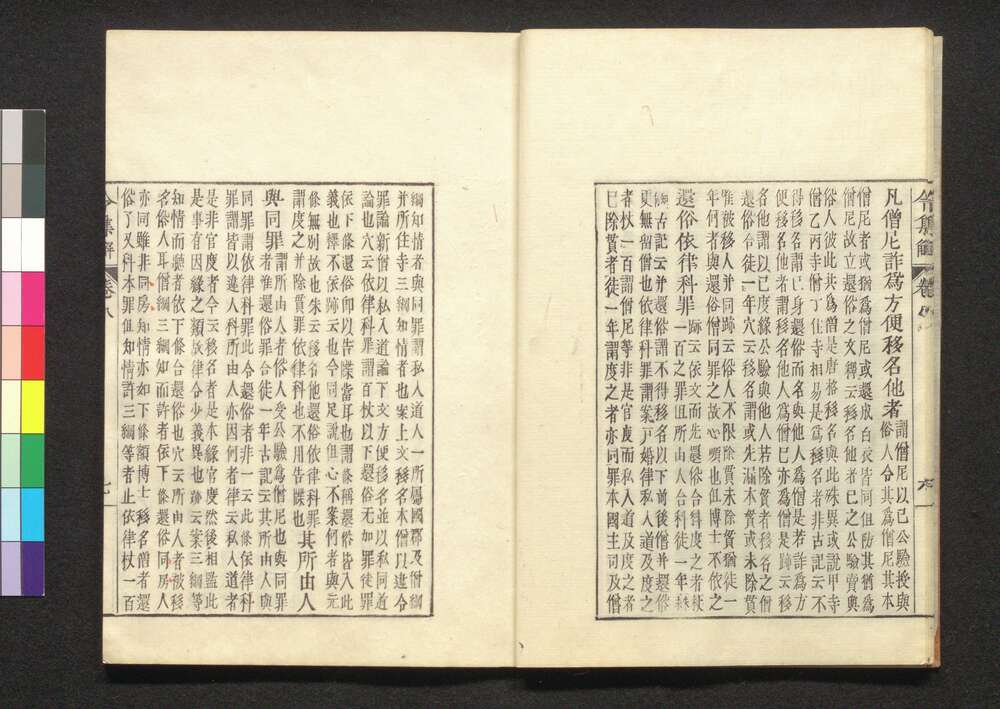 令集解 卷八
凡僧尼詐爲方便移名他者 謂僧尼以己公驗授與
俗人令其爲僧尼其本
僧尼者或猶爲僧尼或還成白衣皆同但防其猶爲
僧尼故立還俗之文釋云移名他者己之公驗賣與
俗人彼此共爲僧是唐格移名與此殊異或說甲寺
僧乙丙寺僧丁住寺相易是爲移名者非古記云不
得移名謂己身還俗而名與他人爲僧是若詐爲方
便移名他者謂移名他人爲僧己亦爲僧是跡云移
名他謂以己度緣公驗與他人若除貫者移名之僧
還俗合徒一年穴云移名謂或先漏本貫或未除貫
唯被移人并同跡云俗人不限除貫未除貫猶徒一
年何者與還俗僧同罪之故心煩也但博士不依之
還俗依律科罪 跡云依文而先還俗合斜度之者杖
一百之罪但所由人合科徒一年
古記云并還俗謂不得移名以下前後僧并還俗
更無留僧也依律科罪謂案戸婚律私入道及度之
者杖一百謂僧尼等非是官度而私入道及度之者
已除貫者徒一年謂度之者亦同罪本國主司及僧
綱知情者與同罪謂私入道人一所屬國郡及僧綱
并所住寺三綱知情者也案上文移名本僧以違令
罪論新僧以私入道論下文方便移名並以私同道
論也穴云依律科罪謂百杖以下還俗无如罪徒罪
依下條還俗即以告牒當耳也謂條稱還俗皆入此
義也擇不依跡不云也令同足說但心不案何者與元
條無別故也朱云移名他還俗依律科罪
謂度之并除貫罪依律科也不用告牒也其所由人
與同罪 謂所由人者俗人受公驗爲僧尼也與同罪
者准還俗罪合徒一年古記云其所由人與
同罪謂依律科罪此令還俗者非一云此條依律科
罪謂皆以違人科所由人亦因何者律云私入道者
是非官度者今云移名者是本緣官度然後相濫此
是事有因緣之類故律合少義異也跡云案三綱等
知情而聽者依下條合還俗也穴云所由人者被移
名俗人耳僧綱三綱知而許者依下條還俗同房人
亦同雖非同房知情亦如下條額博士移名僧者還
俗了又科本罪但知情許三綱等者止依律杖一百
令集解 卷八 七